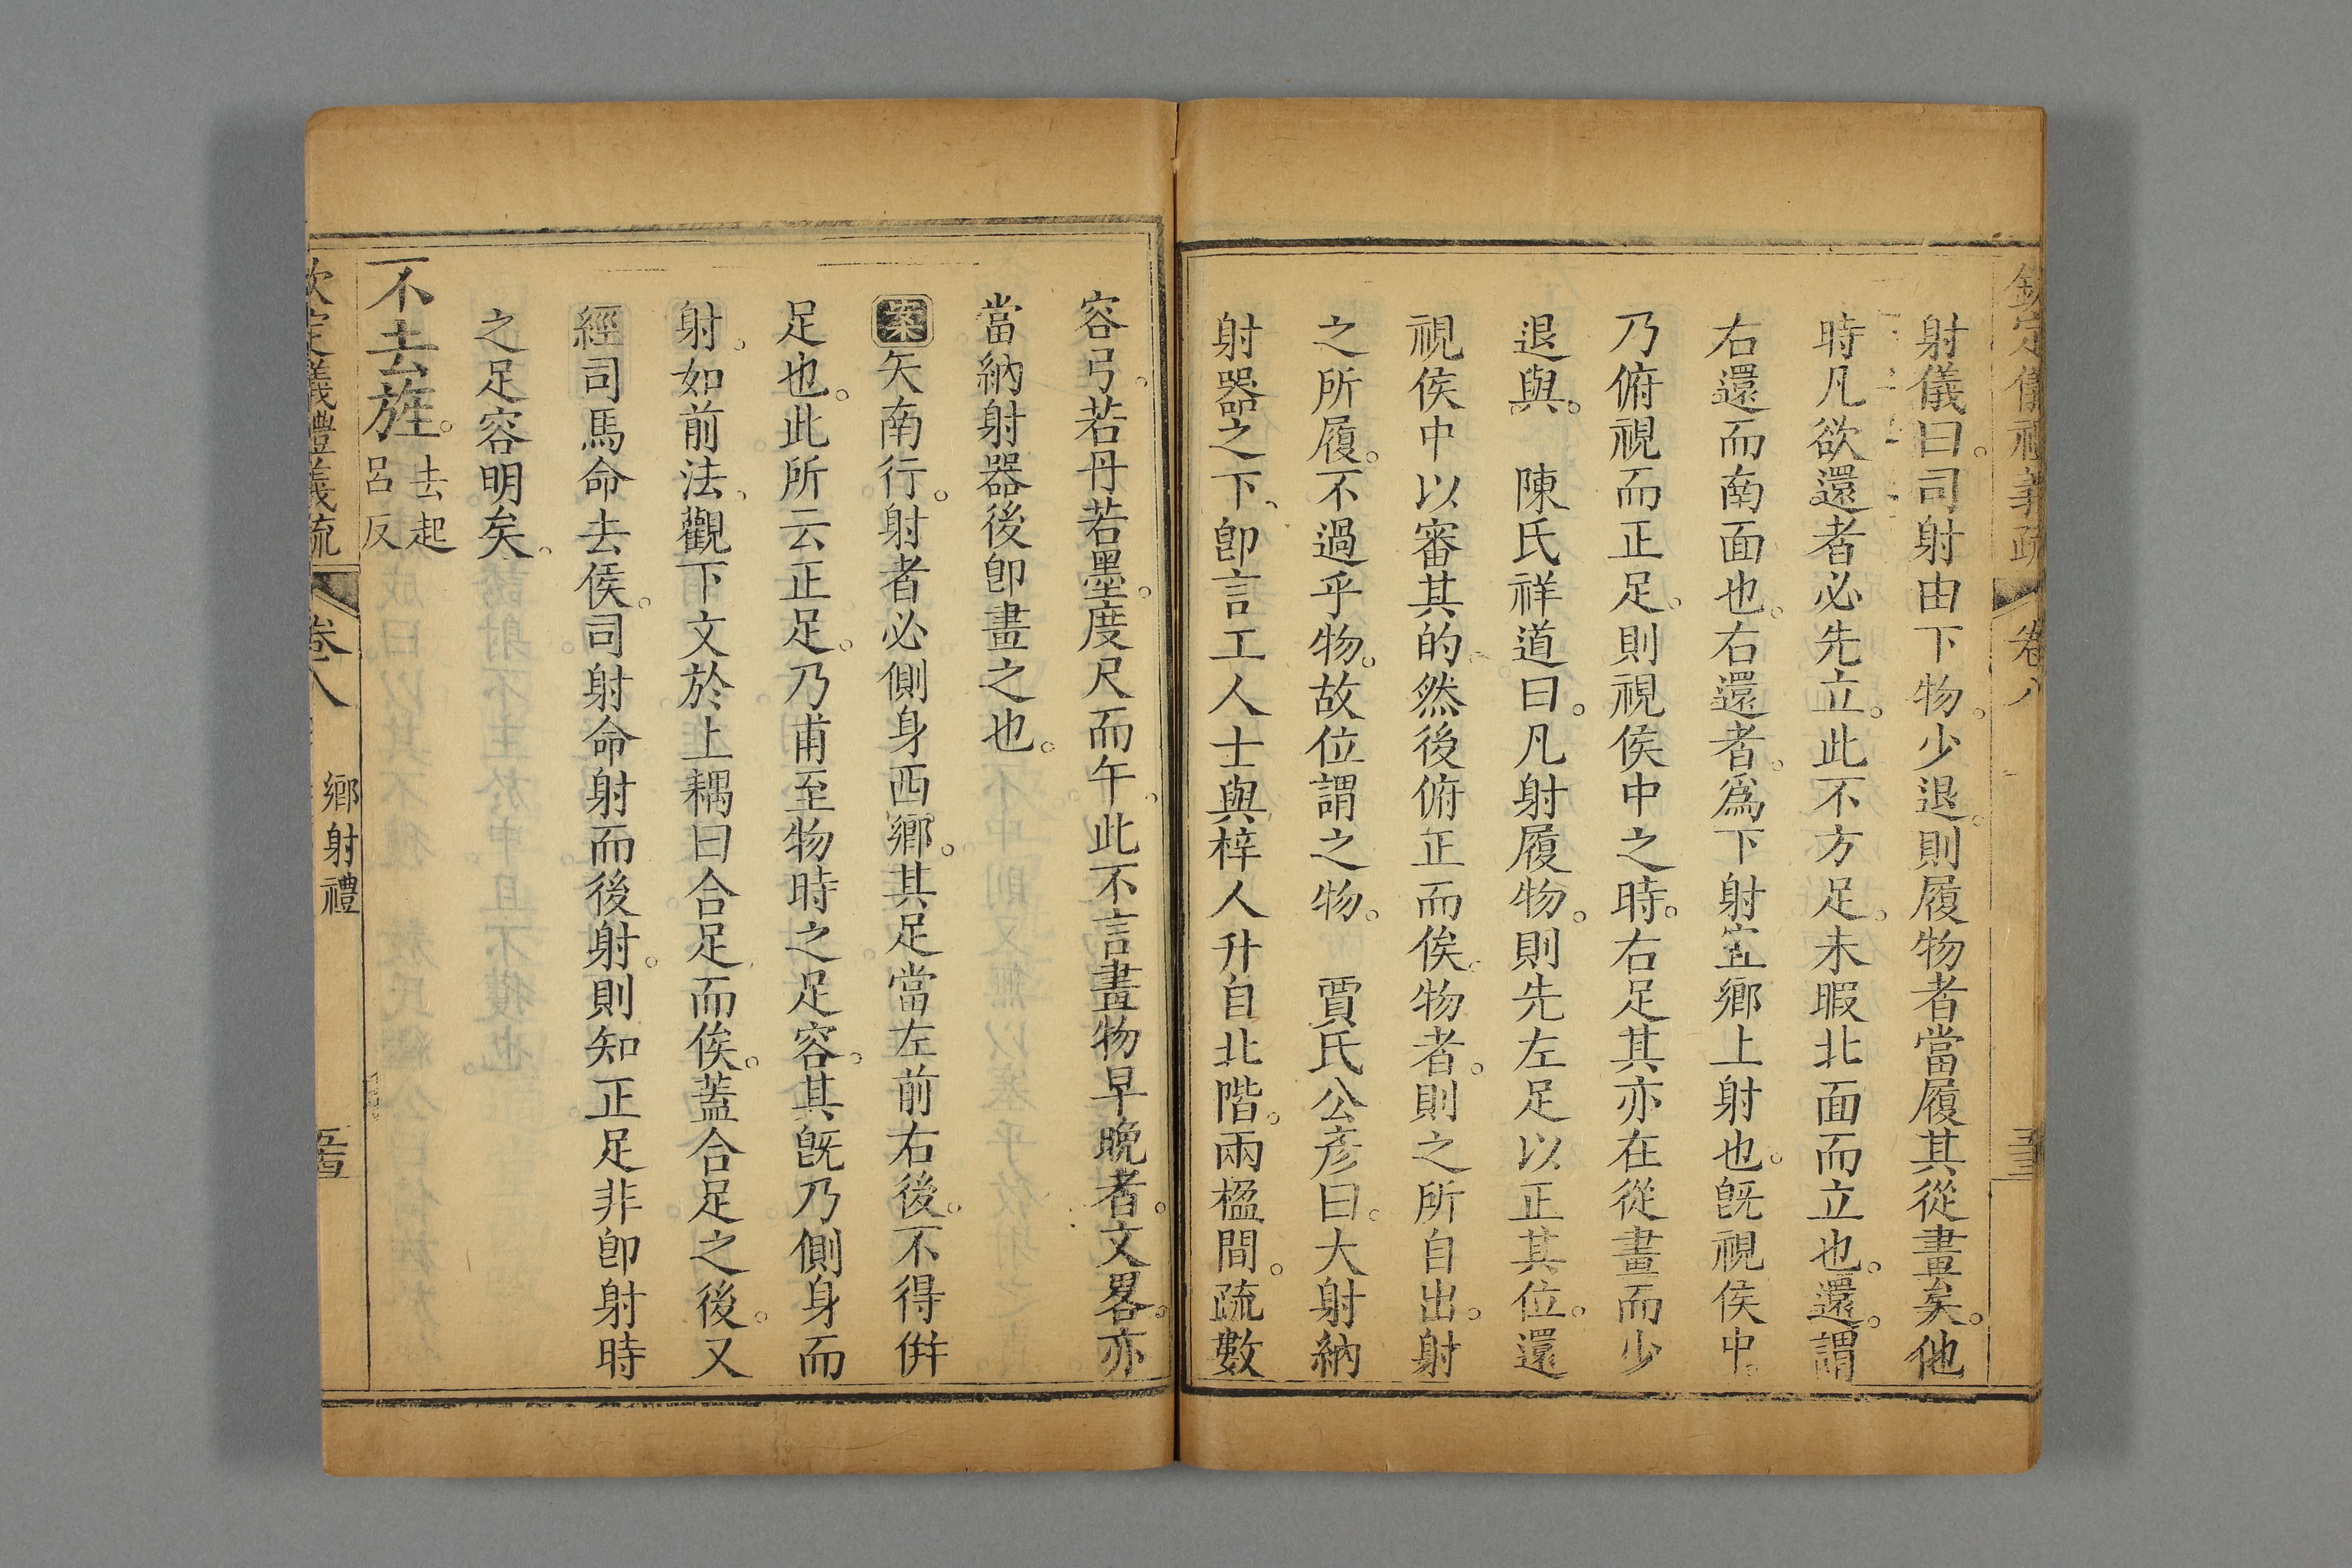 欽定儀禮義疏 卷八
射儀曰。司射由下物。少退。則履物者當履其從畫矣。他
時凡欲還者必先立。此不方足。未暇北面而立也。還。謂
右還而南面也。右還者。爲下射宐鄉上射也。旣視侯中。
乃俯視而正足。則視侯中之時。右足其亦在從畫而少
退與。 陳氏祥道曰。凡射履物。則先左足以正其位。還
視侯中以審其的。然後俯正而俟。物者。則之所自出。射
之所履。不過乎物。故位謂之物。 賈氏公彥曰。大射納
射器之下、卽言工人士與梓人升自北階。兩楹間。疏數
容弓、若丹若墨。度尺而午、此不言畫物早晚者。文畧。亦
當納射器後卽畫之也。
案矢南行。射者必側身西鄉。其足當左前右後。不得倂
足也。此所云正足。乃甫至物時之足容。其旣乃側身而
射。如前法、觀下文於上耦曰合足而俟。蓋合足之後。又
經司馬命去侯。司射命射而後射。則知正足非卽射時
之足容明矣。
不去旌。去起
呂反
欽定儀禮義疏 卷八 鄉射禮